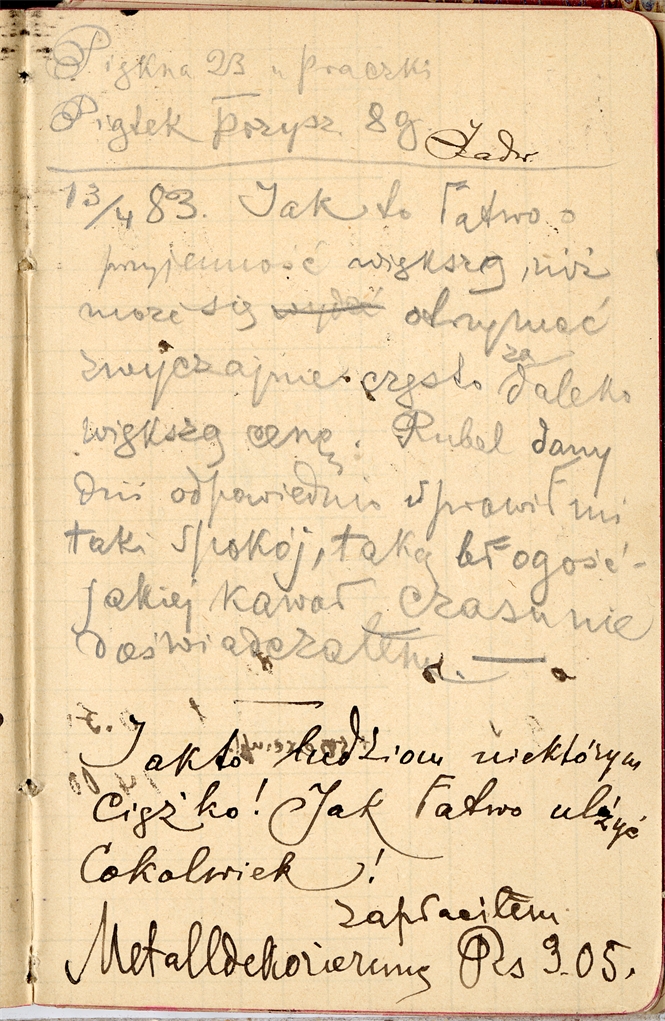 Piękna 23 u praczki
Piątek przysz. 8g Jadw.
13/4 83. Jak to łatwo o
przyjemność większą, niż
może się wydać otrzymać
zwyczajnie często za daleko
większą cenę. Rubel dany
dziś odpowiednio sprawił mi
taki spokój, taką błogość -
jakiej kawał czasu nie
doświadczałem. —
Jak to ludziom niektórym
ciężko! Jak łatwo ulżyć
cokolwiek!
zapłaciłem
Metalldekorierung Rs 3.05.